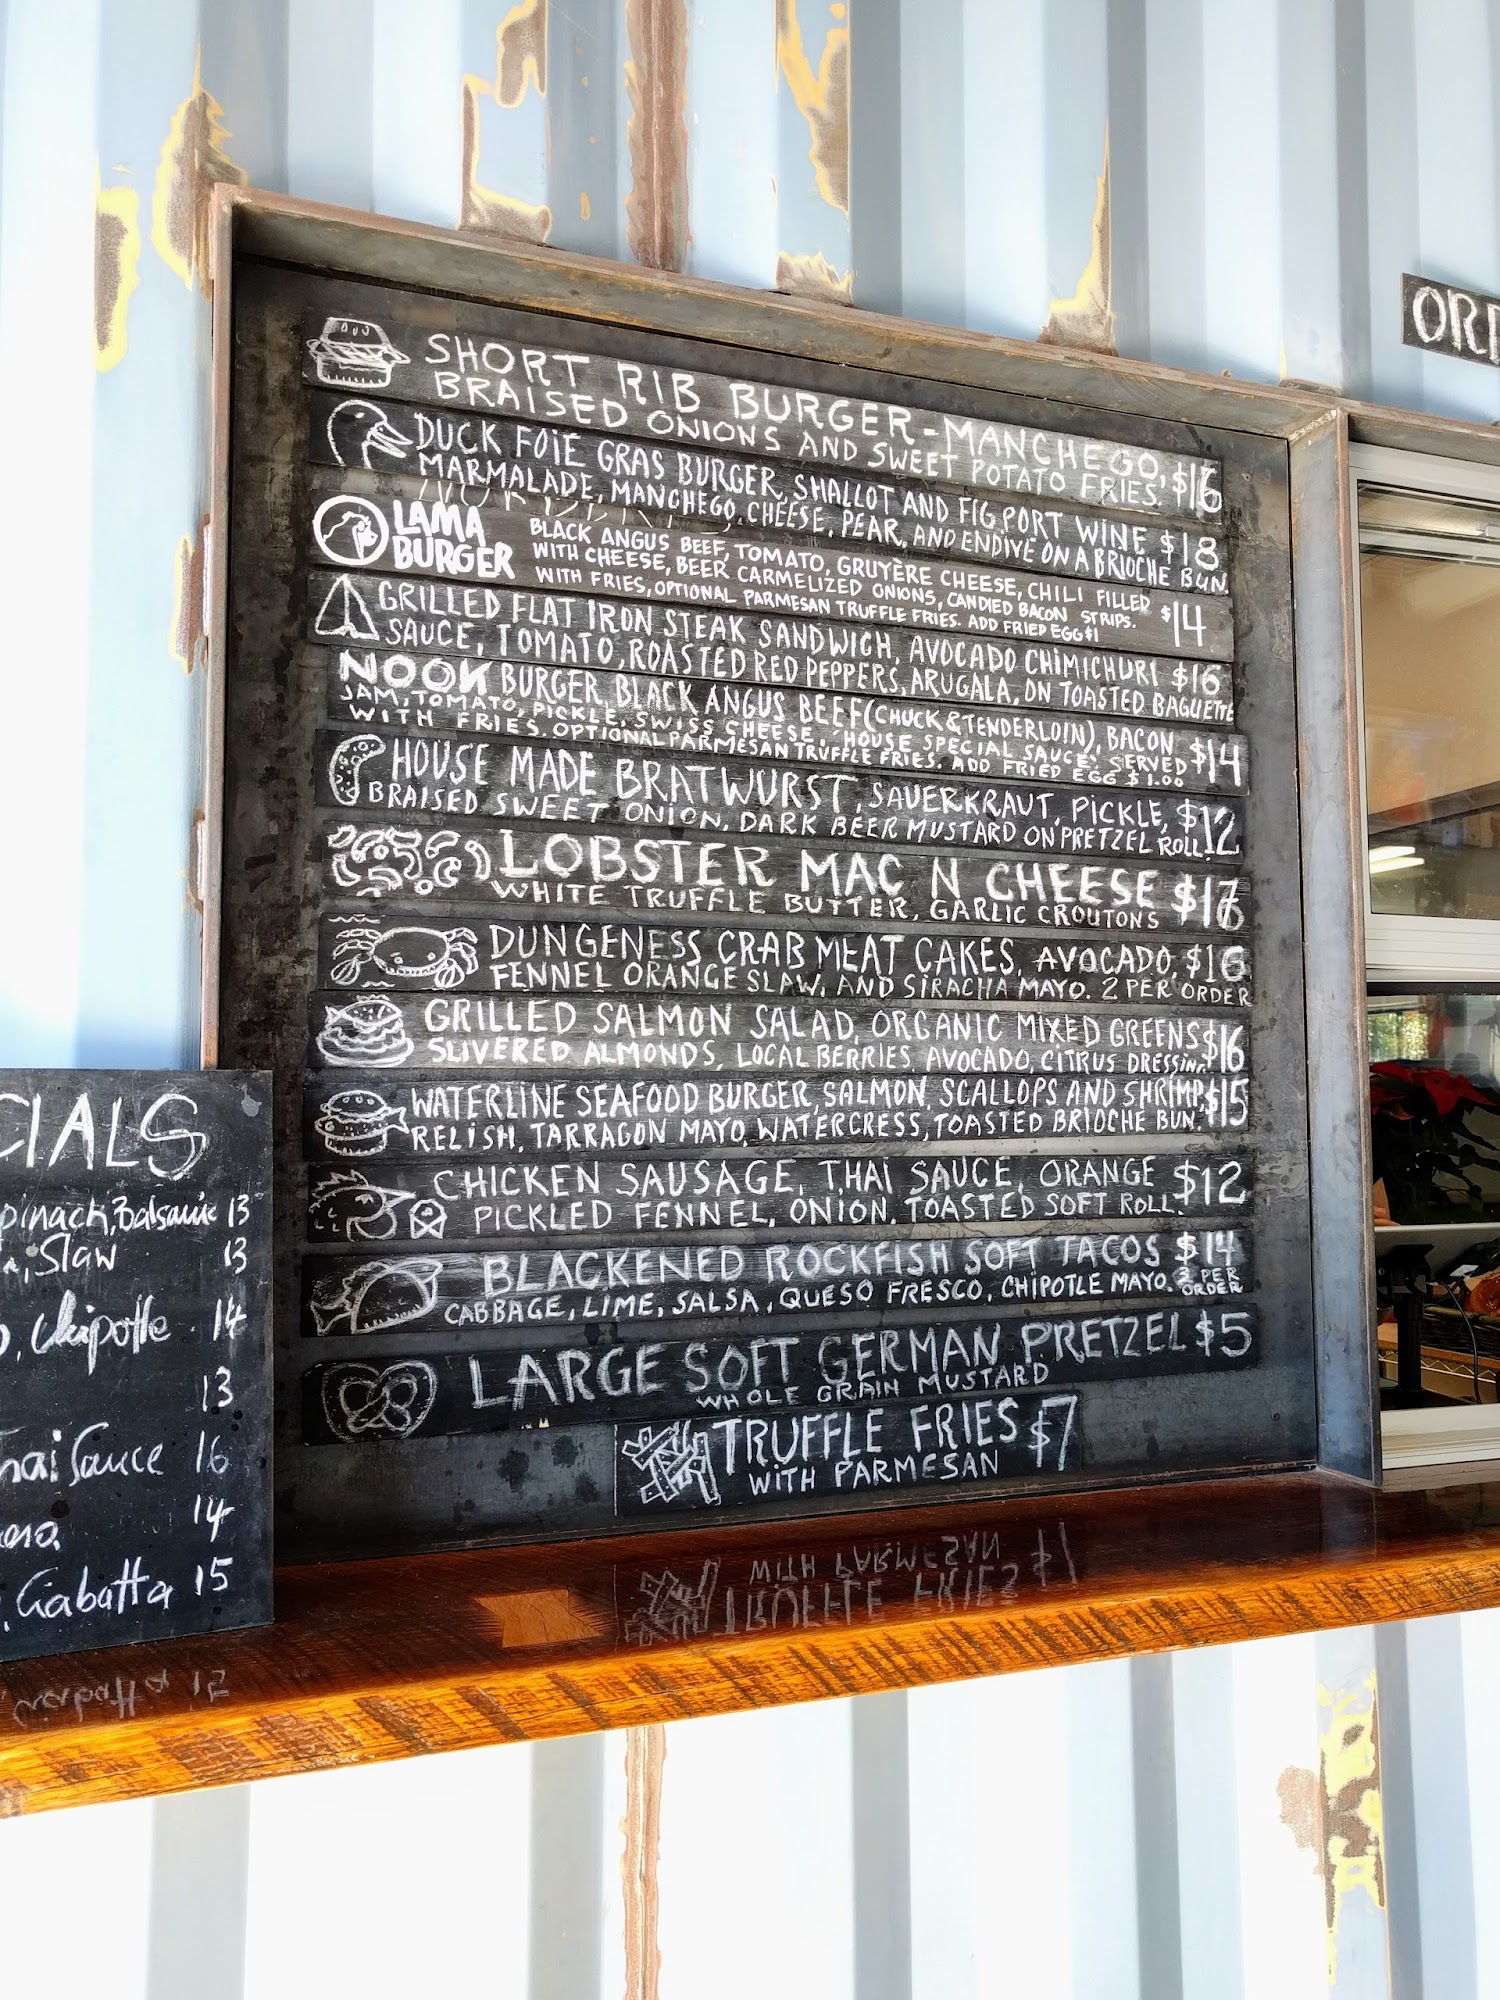 ORD
SHORT RIB BURGER-MANCHEGO, $16
BRAISED ONIONS AND SWEET POTATO FRIES.
DUCK FOIE GRAS BURGER, SHALLOT AND FIG PORT WINE $18
MARMALADE, MANCHEGO CHEESE, PEAR, AND ENDIVE ON A BRIOCHE BUN.
LAMA
BURGER
BLACK ANGUS BEEF, TOMATO, GRUYÈRE CHEESE, CHILI FILLED
WITH CHEESE, BEER CARMELIZED ONIONS, CANDIED BACON STRIPS. $14
WITH FRIES, OPTIONAL PARMESAN TRUFFLE FRIES. ADD FRIED EGG $1
GRILLED FLAT IRON STEAK SANDWICH, AVOCADO CHIMICHURI $16
SAUCE, TOMATO, ROASTED RED PEPPERS, ARUGALA, ON TOASTED BAGUETTE
NOOK BURGER BLACK ANGUS BEEF (CHUCK & TENDERLOIN), BACON $14
JAM, TOMATO, PICKLE, SWISS CHEESE, 'HOUSE SPECIAL SAUCE'. SERVED
WITH FRIES. OPTIONAL PARMESAN TRUFFLE FRIES. ADD FRIED EGG $1.00
HOUSE MADE BRATWURST, SAUERKRAUT, PICKLE, $12
BRAISED SWEET ONION, DARK BEER MUSTARD ON PRETZEL ROLL.
LOBSTER MAC N CHEESE
WHITE TRUFFLE BUTTER, GARLIC CROUTONS
DUNGENESS CRAB MEAT CAKES, AVOCADO, $16
FENNEL ORANGE SLAW, AND SIRACHA MAYO. 2 PER ORDER
GRILLED SALMON SALAD, ORGANIC MIXED GREENS $16
SLIVERED ALMONDS, LOCAL BERRIES, AVOCADO, CITRUS DRESSING
WATERLINE SEAFOOD BURGER, SALMON, SCALLOPS AND SHRIMP, $15
RELISH, TARRAGON MAYO, WATERCRESS, TOASTED BRIOCHE BUN.
CHICKEN SAUSAGE, THAI SAUCE, ORANGE $12
PICKLED FENNEL, ONION, TOASTED SOFT ROLL.
BLACKENED ROCKFISH SOFT TACOS $14
CABBAGE, LIME, SALSA, QUESO FRESCO, CHIPOTLE MAYO. PER
ORDER
LARGE SOFT GERMAN PRETZEL $5
WHOLE GRAIN MUSTARD
TRUFFLE FRIES $7
WITH PARMESAN
CIALS
pinach, Balsamic 13
, Slaw 13
, Chipotle 14
13
hai Sauce 16
14
, Ciabatta 15